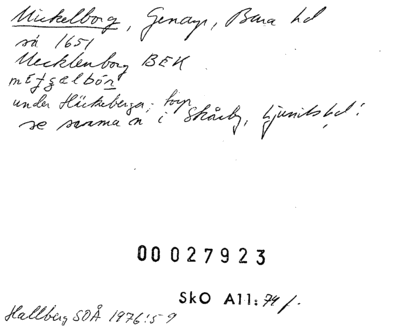 Mickelborg, Genarp, Bara hd
så 1651
Mecklenborg BEK
under Häckeberga; torp
se samma n i Skårby, Ljunits hd!
00027923
SkO A11: 74 f.
Hallberg SOÅ 1976 s 9